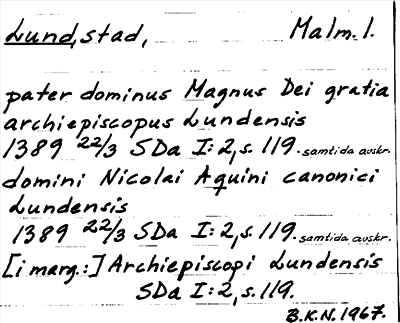 Lund, stad, Malm. l.
pater dominus Magnus Dei gratia
archiepiscopus Lundensis
1389 22/3 SDa I:2, s. 119. samtida avskr.
domini Nicolai Aquini canonici
Lundensis
1389 22/3 SDa I:2, s. 119. samtida avskr.
[i marg.:] Archiepiscopi Lundensis
SDa I:2, s. 119.
B.K.N. 1967.